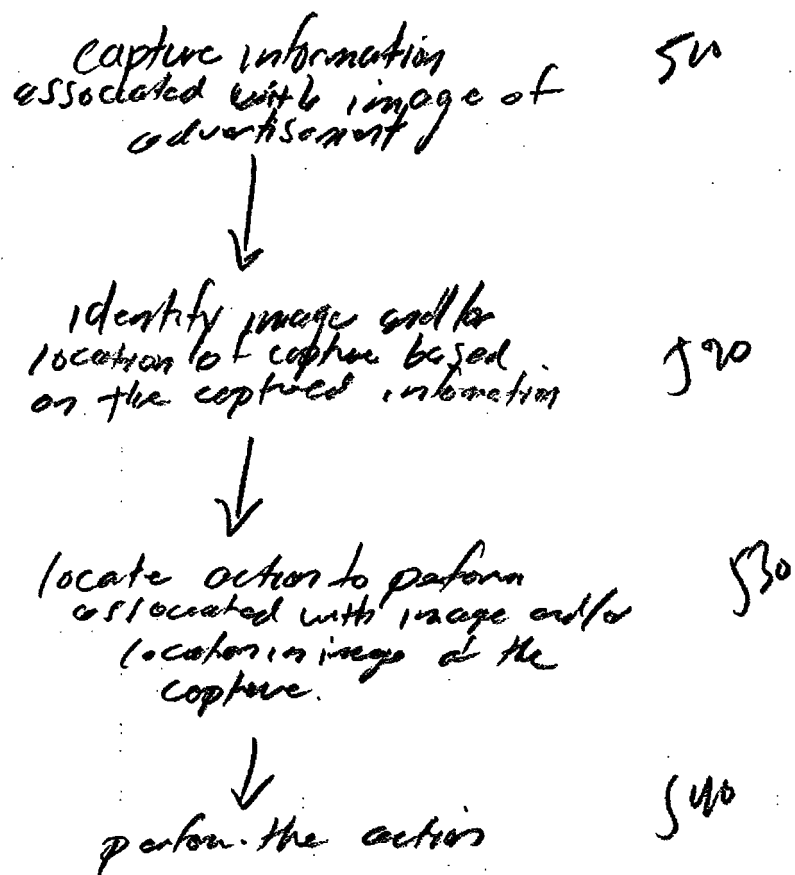 capture information 510
associated with image of
advertisement
identify image and/or
location of capture based 520
on the captured information
locate action to perform 530
associated with image and/or
location in image of the
capture.
perform the action 540